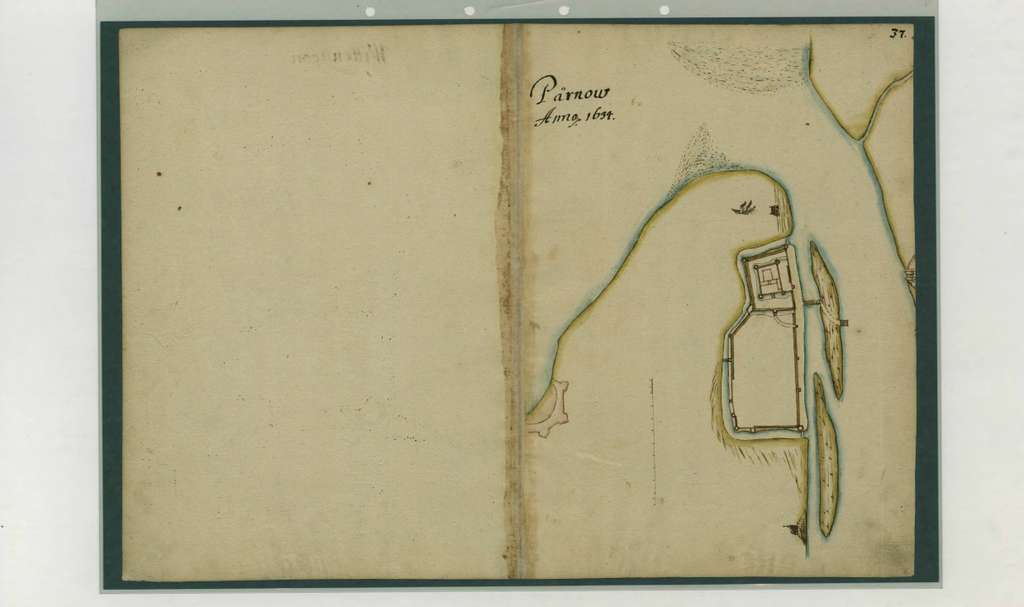 37.
Pärnow
Anno, 1634.